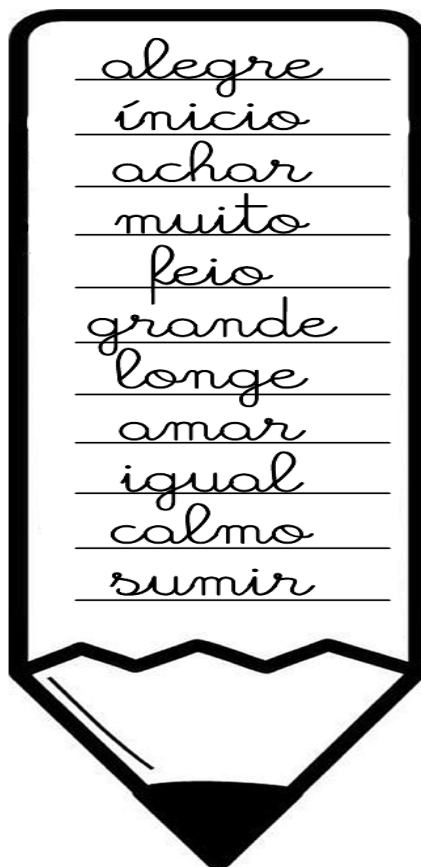 alegre
ínicio
achar
muito
feio
grande
longe
amar
igual
calmo
sumir